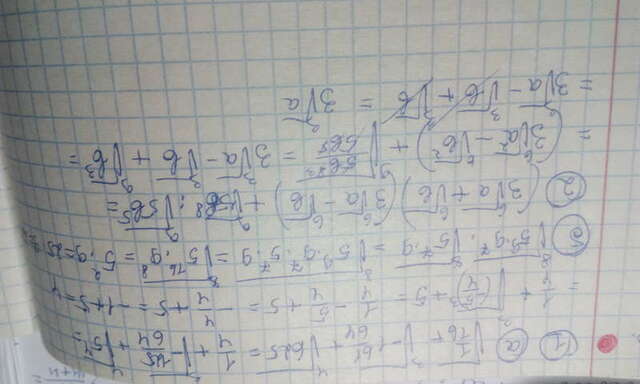 ① а) √1/16 + ³√-1 61/64 + ⁴√625 = 1/4 + ³√-125/64 + ⁴√5⁴ =
= 1/4 + ³√(-5/4)³ + 5 = 1/4 - 5/4 + 5 = -4/4 + 5 = -1 + 5 = 4
б) ⁸√5⁹·9⁷ · ⁸√5⁷·9 = ⁸√5⁹·9⁷·5⁷·9 = ⁸√5¹⁶·9⁸ = 5²·9 = 25·9 =
② (3⁶√a + ⁶√b)(3⁶√a - ⁶√b) + ⁹√5b⁸ : ⁹√5b⁵ =
= (3⁶√a² - ⁶√b²) + ⁹√5b⁸/5b⁵ = 3³√a - ³√b + ⁹√b³ =
= 3³√a - ³√b + ³√b = 3³√a